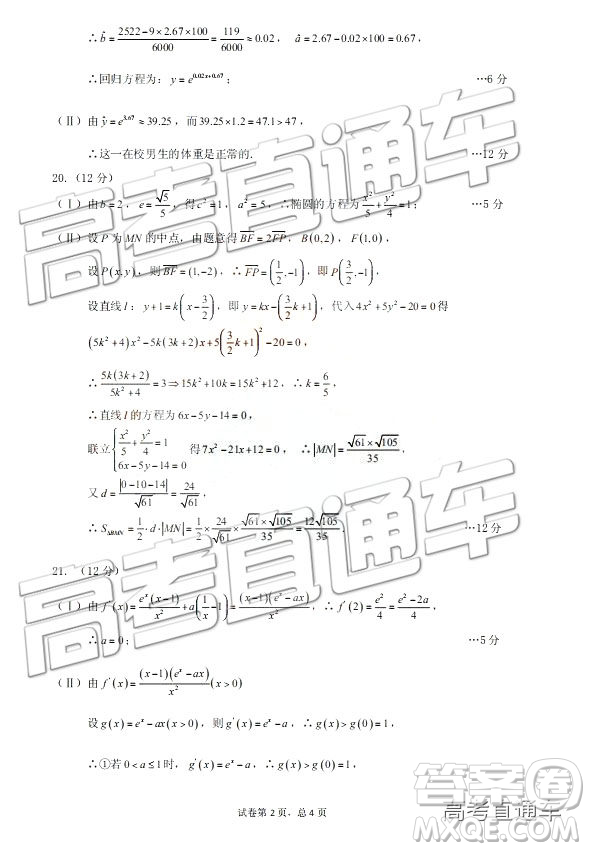 ∴b̂=(2522-9×2.67×100)/6000=119/6000≈0.02, â=2.67-0.02×100=0.67,
∴回归方程为: y=e^(0.02x+0.67); …6 分
(Ⅱ) 由ŷ=e^3.67≈39.25, 而39.25×1.2=47.1>47,
∴这一在校男生的体重是正常的. …12 分
20. (12 分)
(Ⅰ) 由b=2, e=√5/5, 得c²=1, a²=5, ∴椭圆的方程为x²/5+y²/4=1; …5 分
(Ⅱ)设 P 为 MN 的中点, 由题意得BF=2FP, B(0,2), F(1,0),
设P(x,y), 则BF=(1,-2), ∴FP=(1/2,-1), 即P(3/2,-1),
设直线l: y+1=k(x-3/2), 即 y=kx-(3/2k+1), 代入4x²+5y²-20=0得
(5k²+4)x²-5k(3k+2)x+5(3/2k+1)²-20=0,
∴5k(3k+2)/(5k²+4)=3⇒15k²+10k=15k²+12, ∴k=6/5,
∴直线 l 的方程为6x-5y-14=0,
联立{x²/5+y²/4=1 6x-5y-14=0 得7x²-21x+12=0, ∴|MN|=√61×√105/35,
又d=|0-10-14|/√61=24/√61,
∴S△BMN=1/2·d·|MN|=1/2×24/√61×√61×√105/35=12√105/35. …12分
21. (12 分)
(Ⅰ) 由f'(x)=e^x(x-1)/x²+a(1/x-1)=(x-1)(e^x-ax)/x², ∴f'(2)=e²/4=(e²-2a)/4,
∴a=0; …5 分
(Ⅱ) 由f'(x)=(x-1)(e^x-ax)/x²(x>0)
设g(x)=e^x-ax(x>0), 则g'(x)=e^x-a, ∴g(x)>g(0)=1,
∴①若0<a≤1时, g'(x)=e^x-a, ∴g(x)>g(0)=1,
试卷第 2 页, 总 4 页
高考直通车
高考直通车
高考直通车
高考直通车
答案圈
MXQE.COM